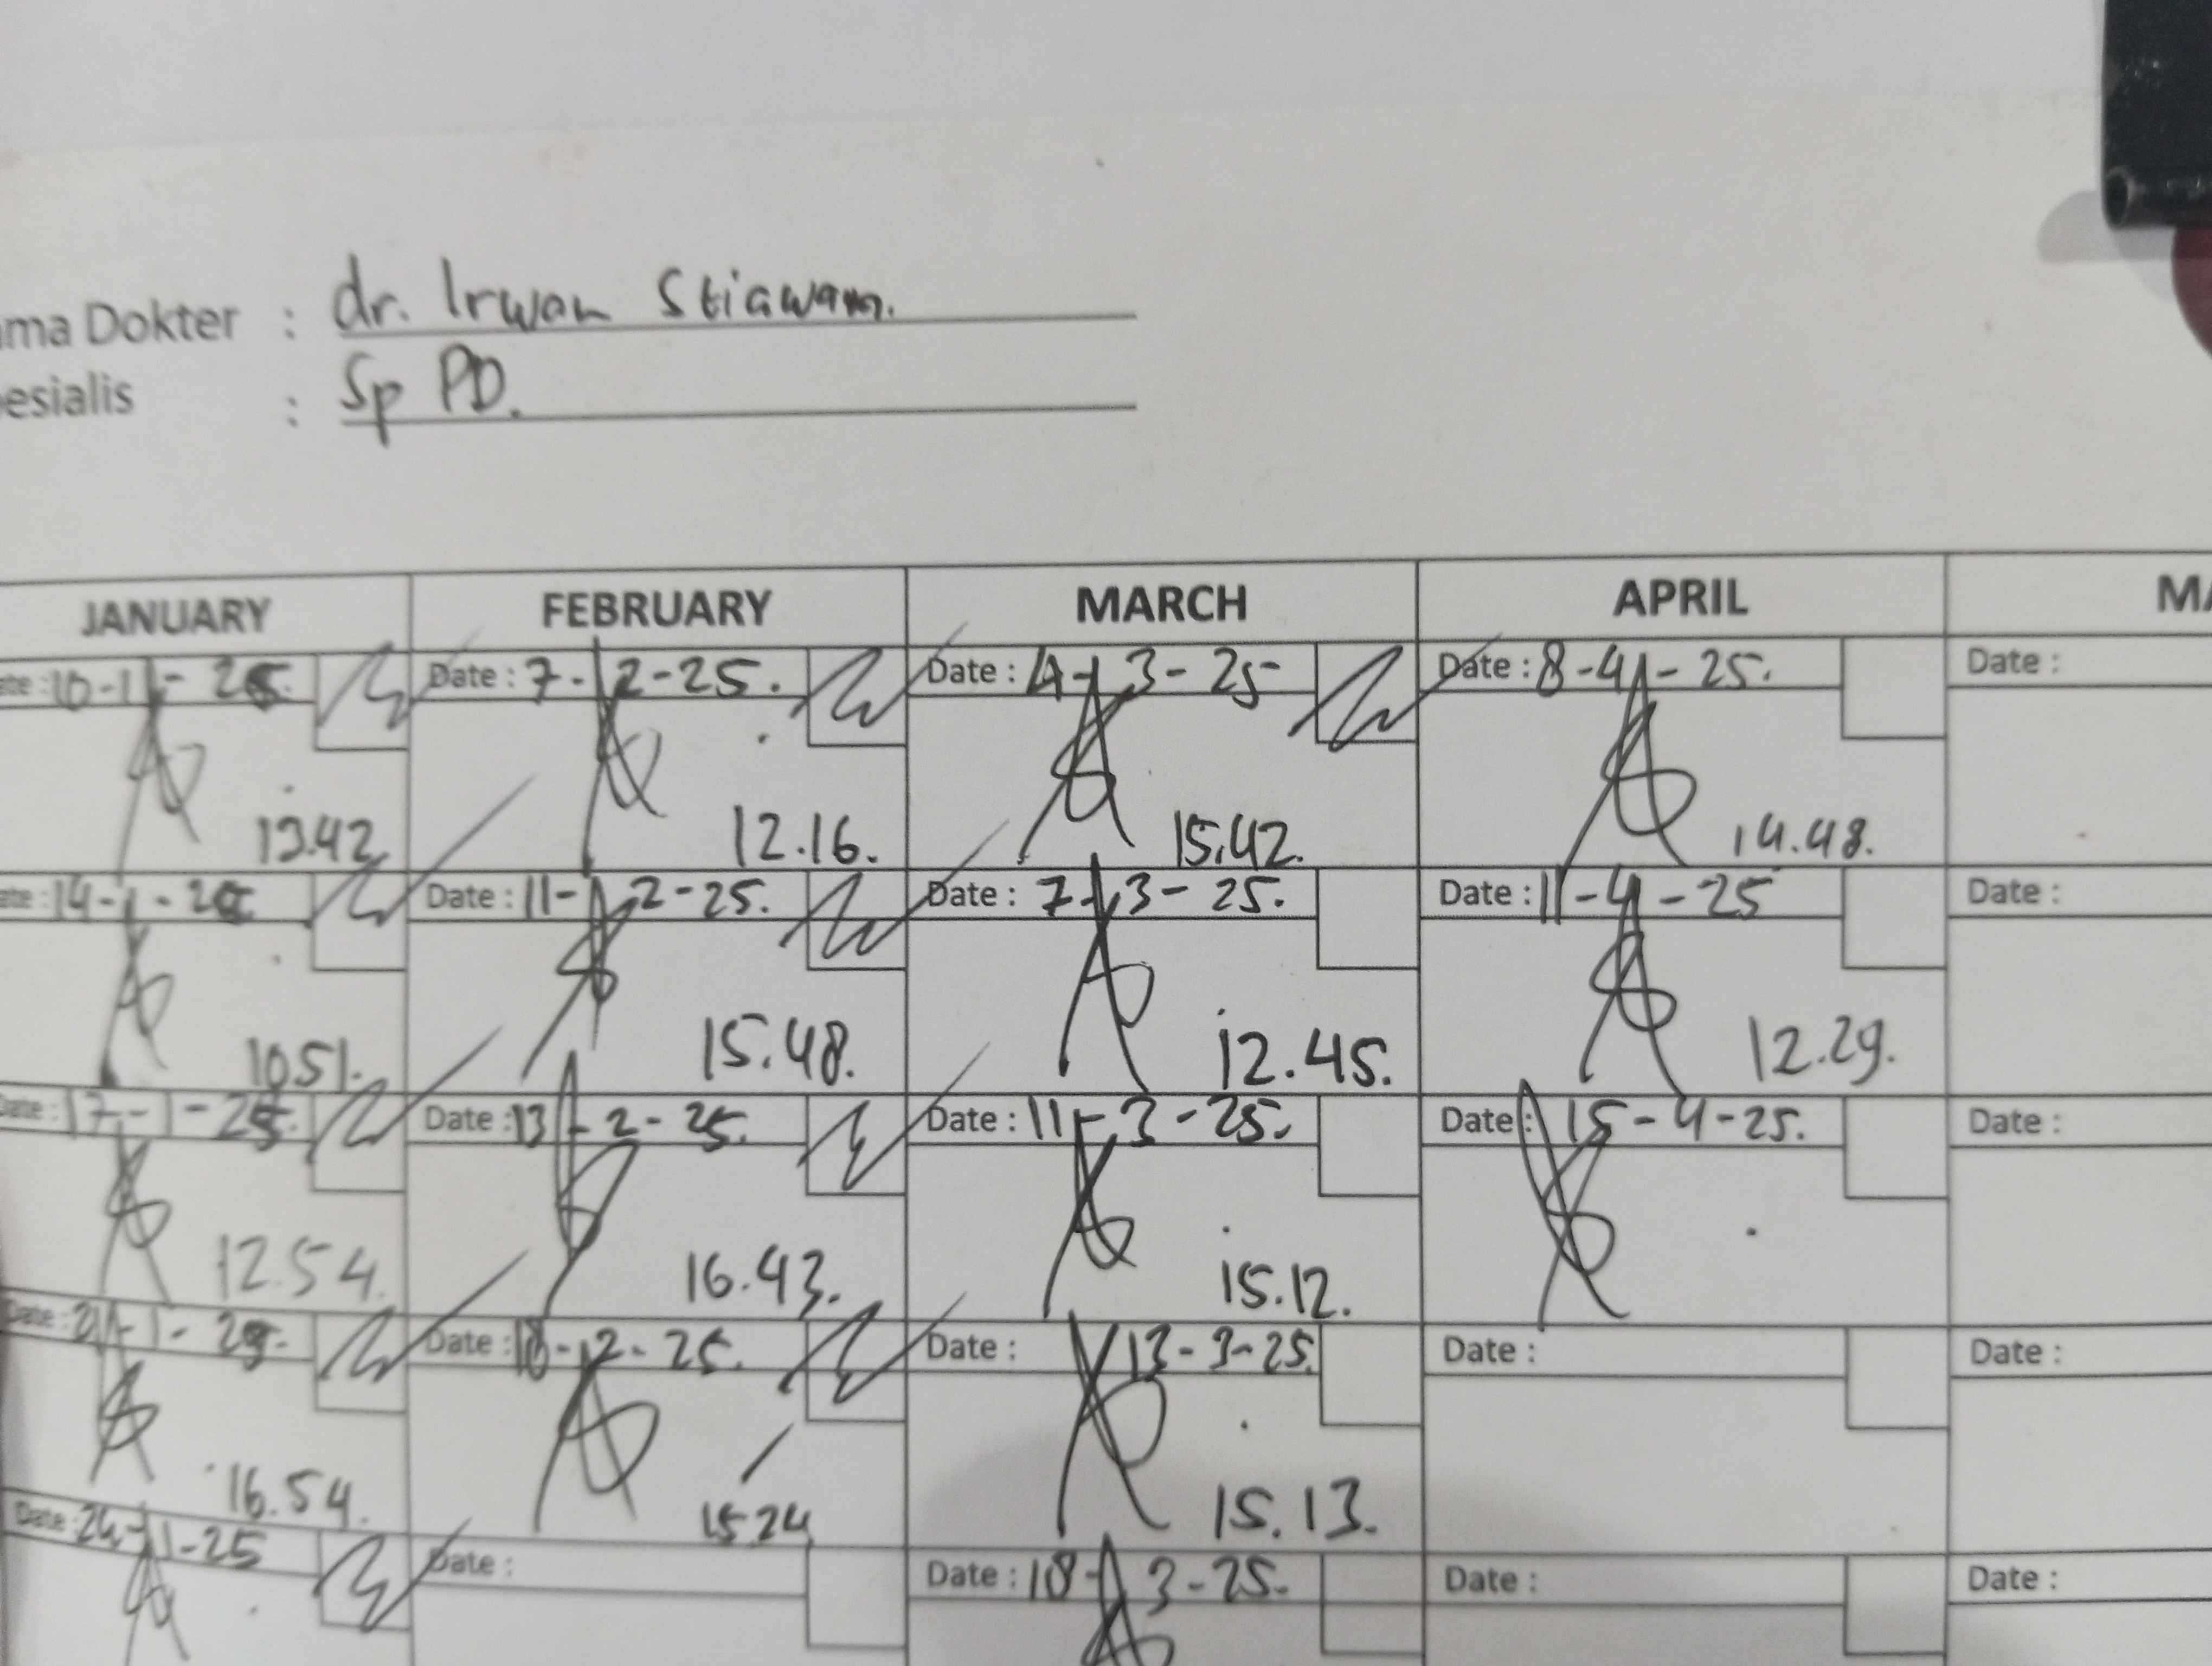 ama Dokter : dr. Irwan Stiawan.
esialis : Sp PD.
JANUARY FEBRUARY MARCH APRIL MA
ate : 10-1-25. Date : 7-2-25. Date : 4-3-25 Date : 8-4-25. Date :
13.42 12.16. 15.42. 14.48.
ate : 14-1-25 Date : 11-2-25. Date : 7-3-25. Date : 11-4-25 Date :
10.51. 15.48. 12.45. 12.29.
Date : 17-1-25. Date : 13-2-25. Date : 11-3-25. Date : 15-4-25. Date :
12.54. 16.43. 15.12.
Date : 21-1-25. Date : 18-2-25. Date : 13-3-25. Date : Date :
16.54. 15.24 15.13.
Date : 24-1-25 Date : Date : 18-3-25. Date : Date :